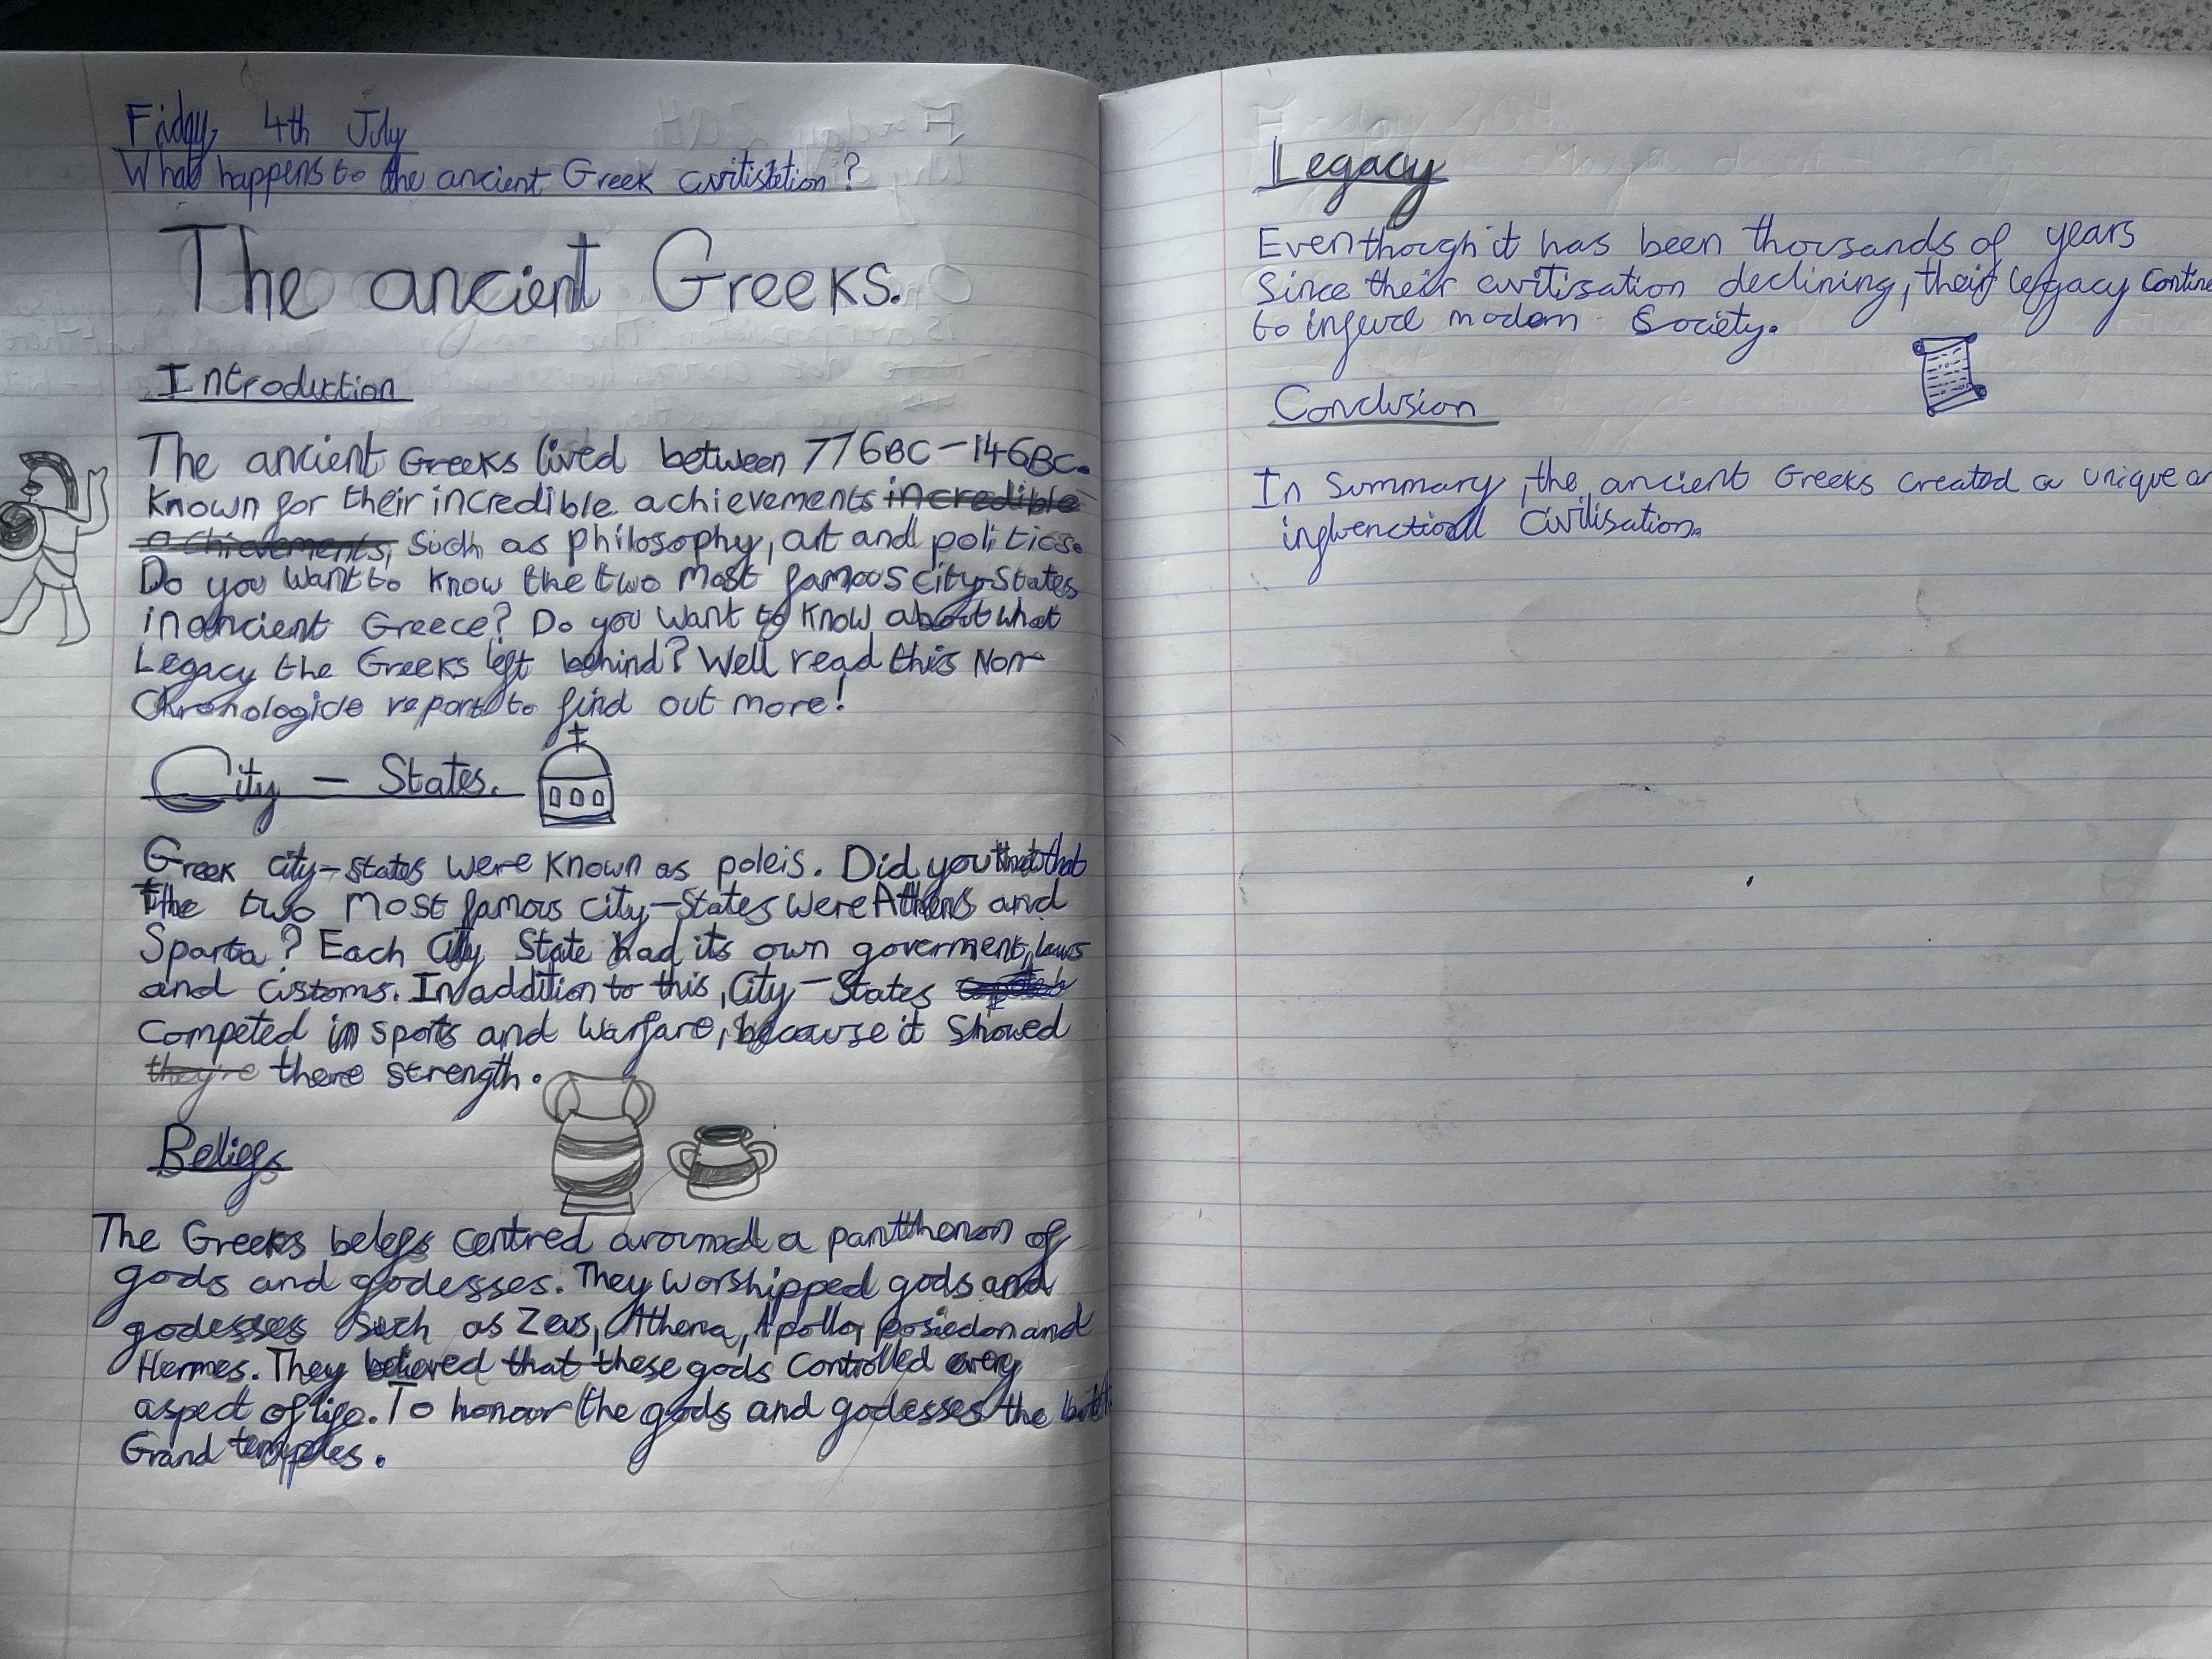 Friday 4th July
What happens to the ancient Greek civilistation?
The ancient Greeks.
Introduction
The ancient Greeks lived between 776BC-146BC.
Known for their incredible achievements incredible
achievements, such as philosophy, art and politics.
Do you want to know the two most famous city-states
in ancient Greece? Do you want to know about what
Legacy the Greeks left behind? Well read this Non-
Chronologicle report to find out more!
City - States.
Greek city-states were known as poleis. Did you that
the two most famous city-states were Athens and
Sparta? Each City State had its own goverment, laws
and customs. In addition to this, City-States
competed in sports and warfare, because it showed
they're there strength.
Beliefs
The Greeks belefs centred around a panthenon of
gods and godesses. They worshipped gods and
godesses such as Zeus, Athena, Apollo, posiedon and
Hermes. They believed that these gods controlled every
aspect of life. To honour the gods and godesses the built
Grand temples.
Legacy
Even though it has been thousands of years
Since their civitisation declining, their legacy contine
to infuwe modern Society.
Conclusion
In Summary, the ancient Greeks created a unique
civilisation.